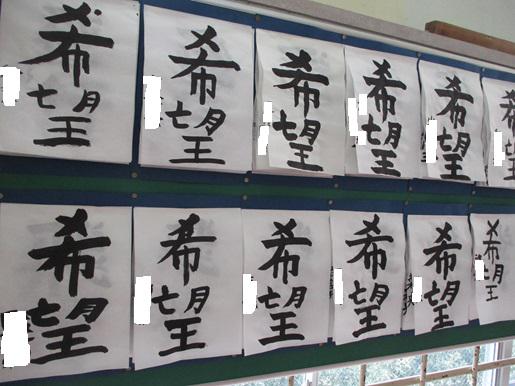 希望
希望
希望
希望
希望
希望
希望
希望
希望
希望
希望
希望